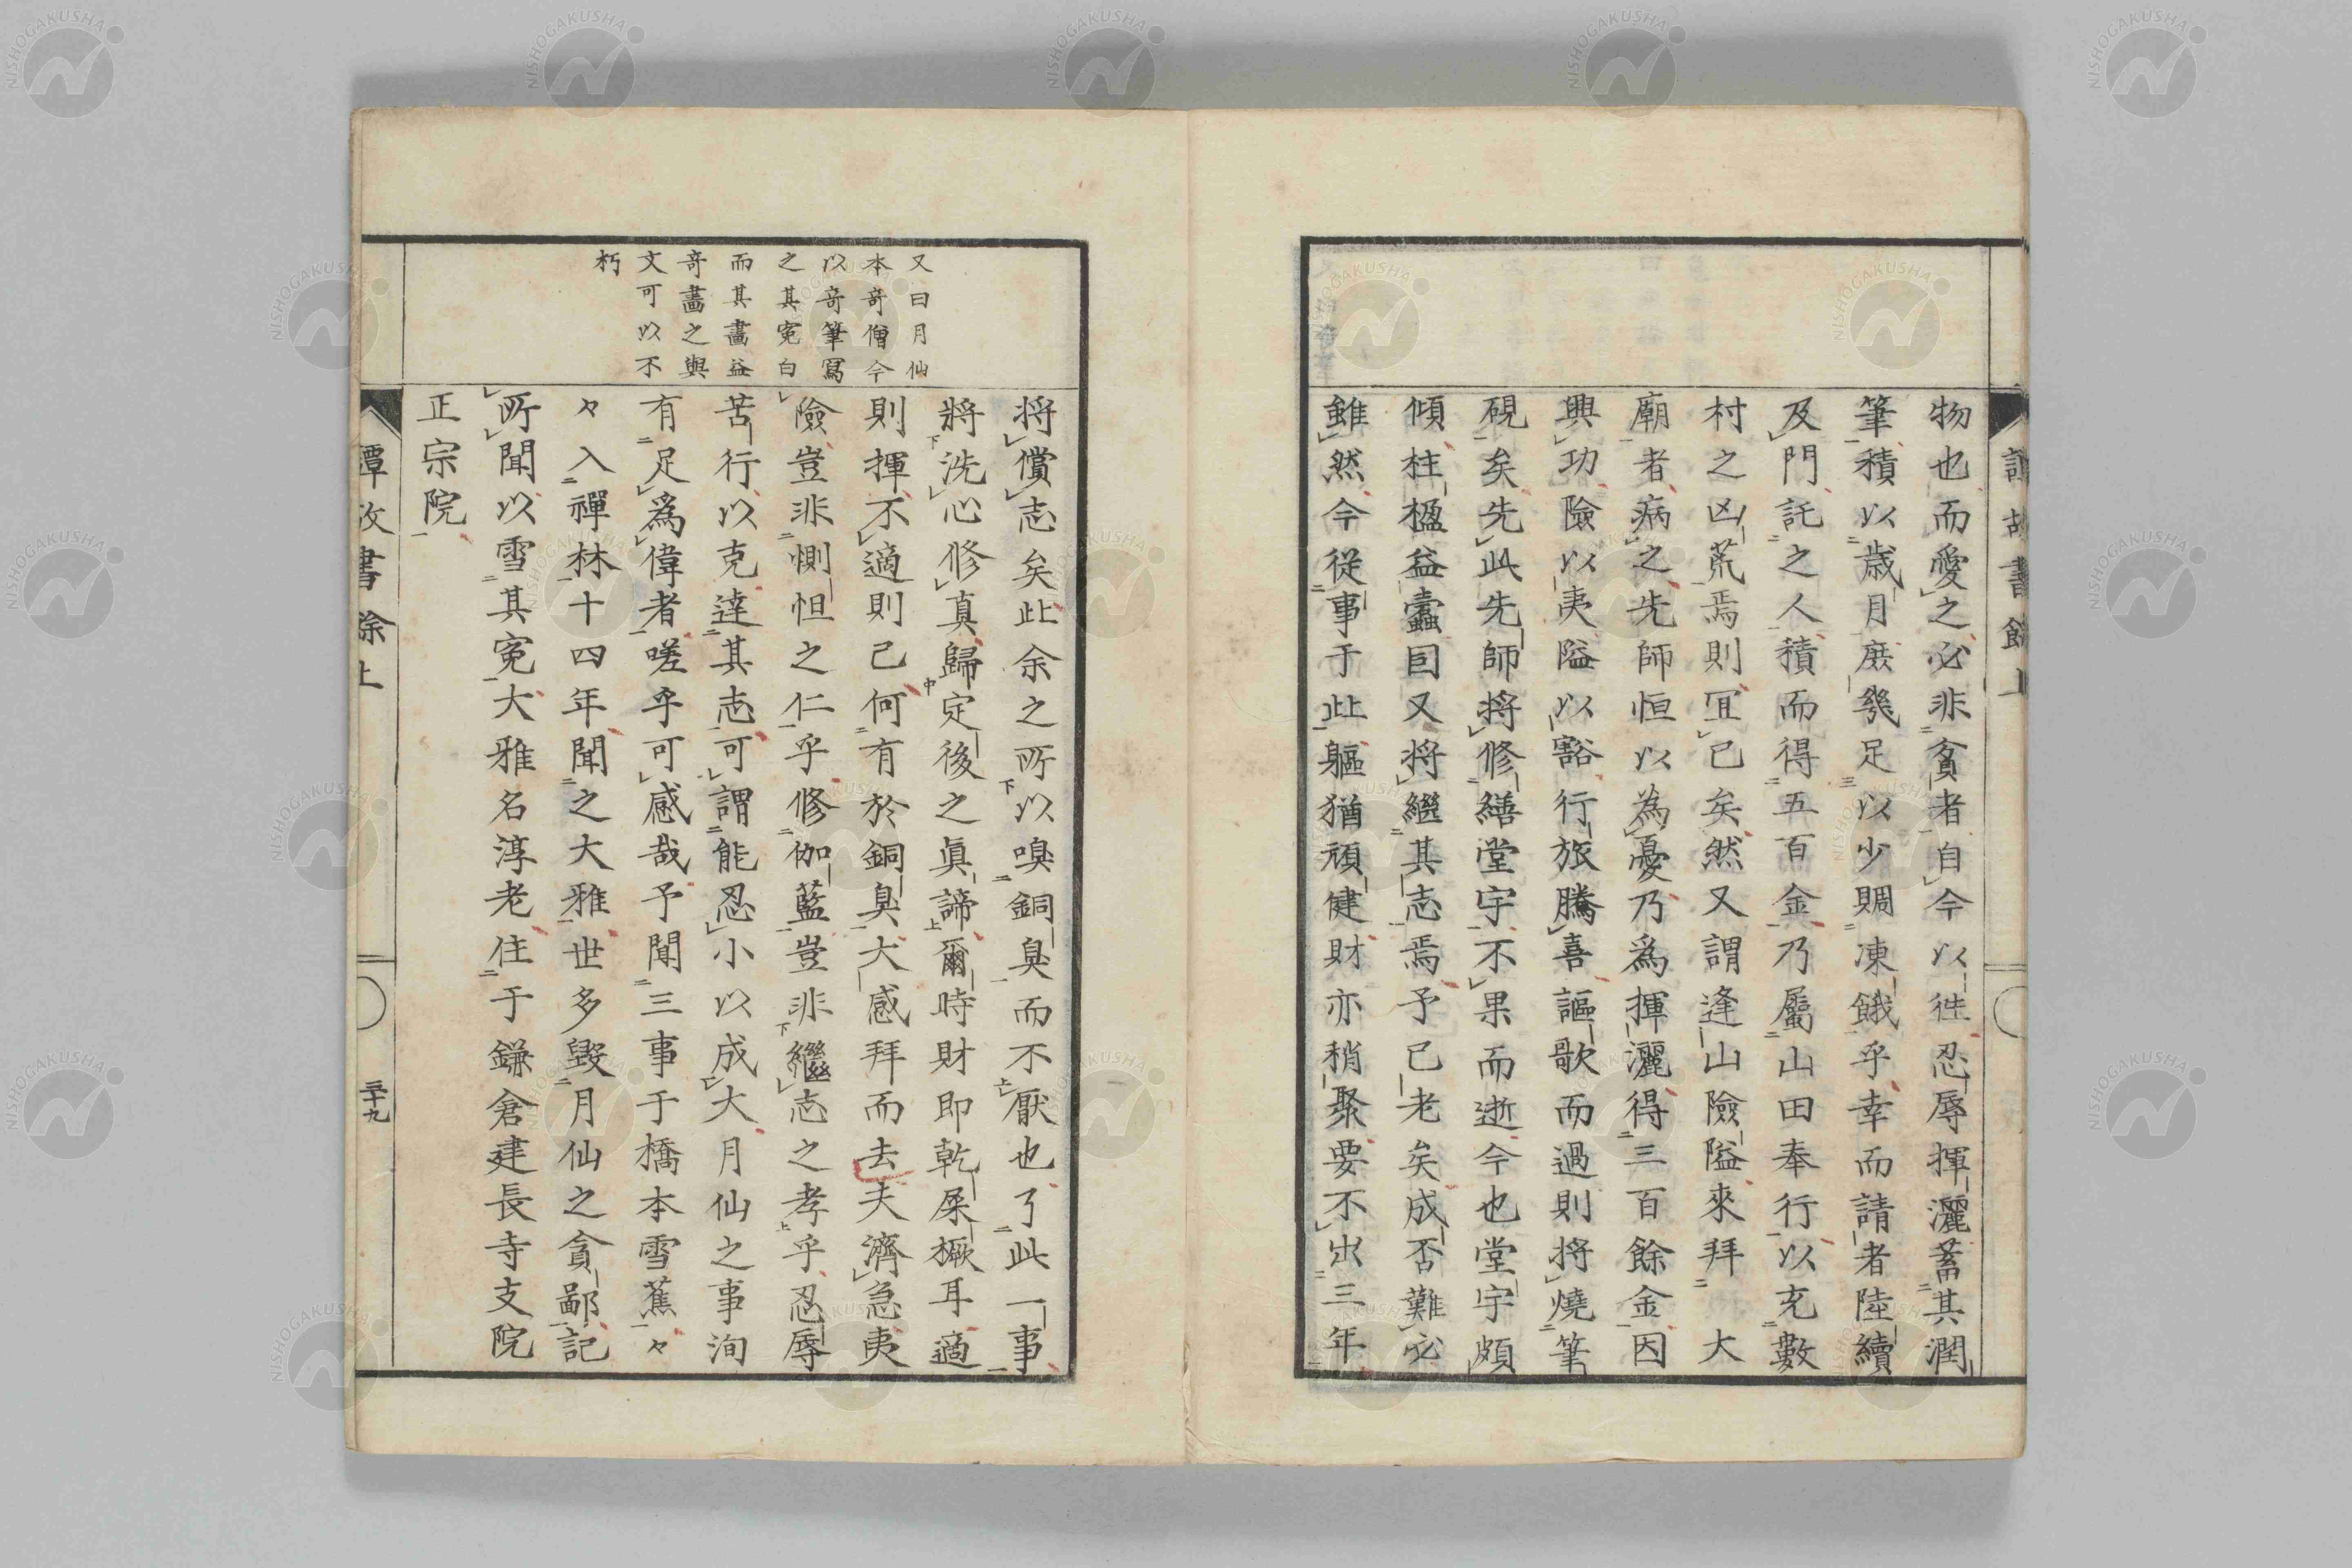 物也而愛之必非貪者自今以徃忍辱揮灑蓄其潤
筆積以歳月庶幾足以少賙凍餓乎幸而請者陸續
及門託之人積而得五百金乃屬山田奉行以充數
村之凶荒焉則冝已矣然又謂逢山險隘來拜 大
廟者病之先師恒以為憂乃爲揮灑得三百餘金因
興功險以夷隘以豁行旅騰喜謳歌而過則將燒筆
硯矣先此先師將修繕堂宇不果而逝今也堂宇頗
傾柱楹益蠹囙又將繼其志焉予已老矣成否難必
雖然今從事于此軀猶頑健財亦稍聚要不出三年
又曰月仙
本竒僧今
以竒筆寫
之其寃白
而其畵益
竒畵之與
文可以不
朽
將償志矣此余之所以嗅銅臭而不厭也了此一事
將洗心修真歸定後之眞諦爾時財即乾屎橛耳適
則揮不適則已何有於銅臭大感拜而去夫濟急夷
險豈非惻怛之仁乎修伽藍豈非繼志之孝乎忍辱
苦行以克達其志可謂能忍小以成大月仙之事洵
有足爲偉者嗟乎可感哉予聞三事于橋本雪蕉々
々入禪林十四年聞之大雅世多毀月仙之貪鄙記
所聞以雪其寃大雅名淳老住于鎌倉建長寺支院
正宗院
譚故書餘上
三十九